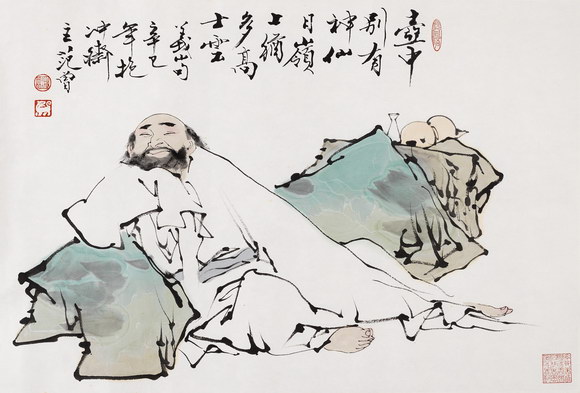 壺中
别有
神仙
日嶺
上猶
多高
士雲
義山句
辛巳
年抱
冲齋
主范曾